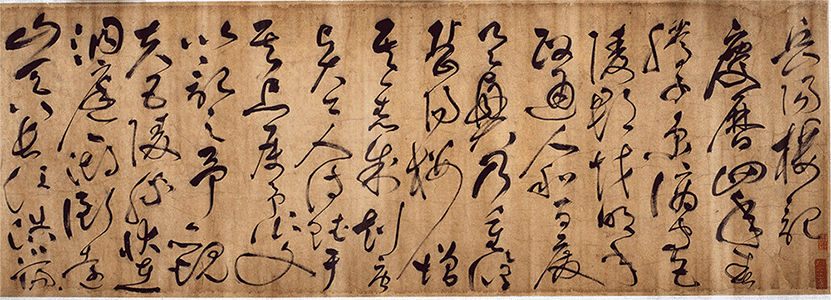 岳陽樓記
慶曆四年春
滕子京謫守巴
陵郡越明年
政通人和百廢
具興乃重修
岳陽樓增
其舊制刻唐
賢今人詩賦于
其上屬予作文
以記之予觀
夫巴陵勝狀在
洞庭一湖銜遠
山吞長江浩浩湯湯